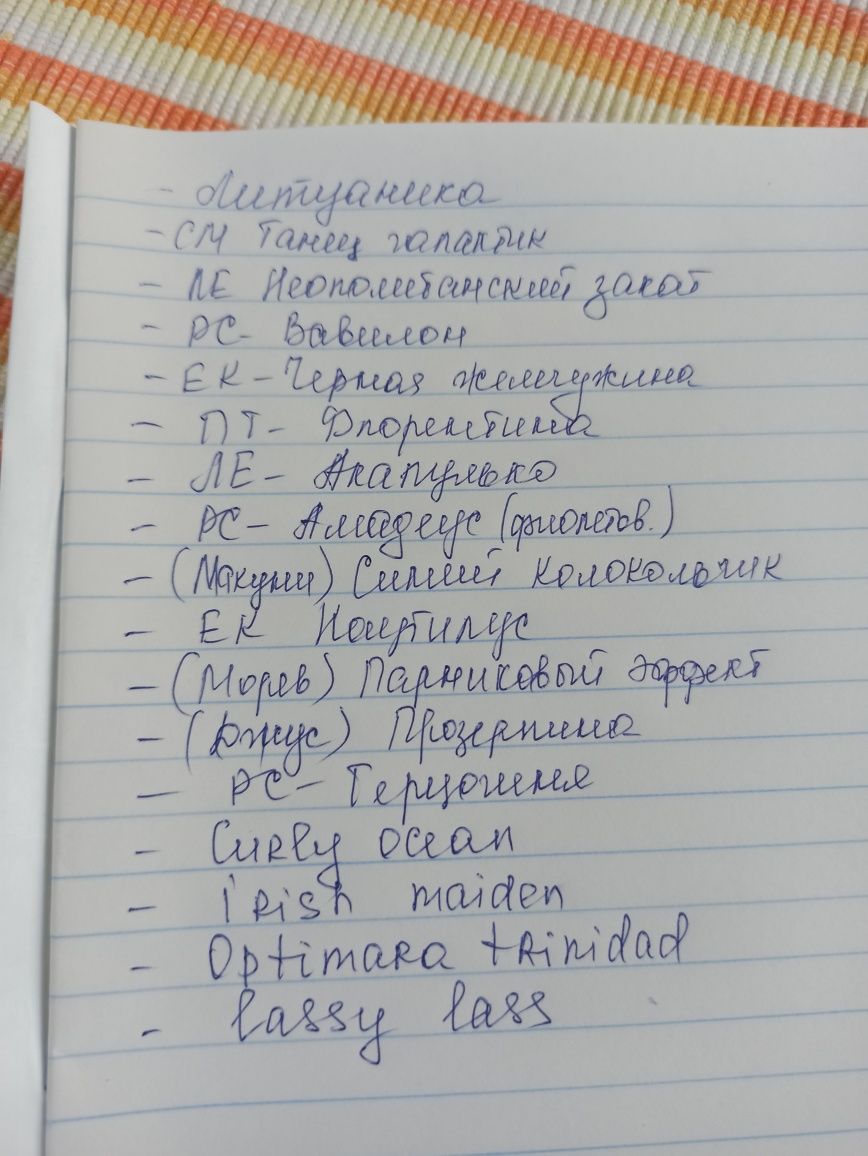 - Литуаника
- СМ Танец галактик
- ЛЕ Неополитанский закат
- РС- Вавилон
- ЕК - Черная жемчужина
- ПТ- Флорентина
- ЛЕ - Акапулько
- РС - Амадеус (фиолетов.)
- (Макуни) Синий колокольчик
- ЕК Наутилус
- (Морев) Парниковый эффект
- (Джус) Прозерпина
- РС - Герцогиня
- Curly ocean
- Irish maiden
- Optimara trinidad
- lassy lass